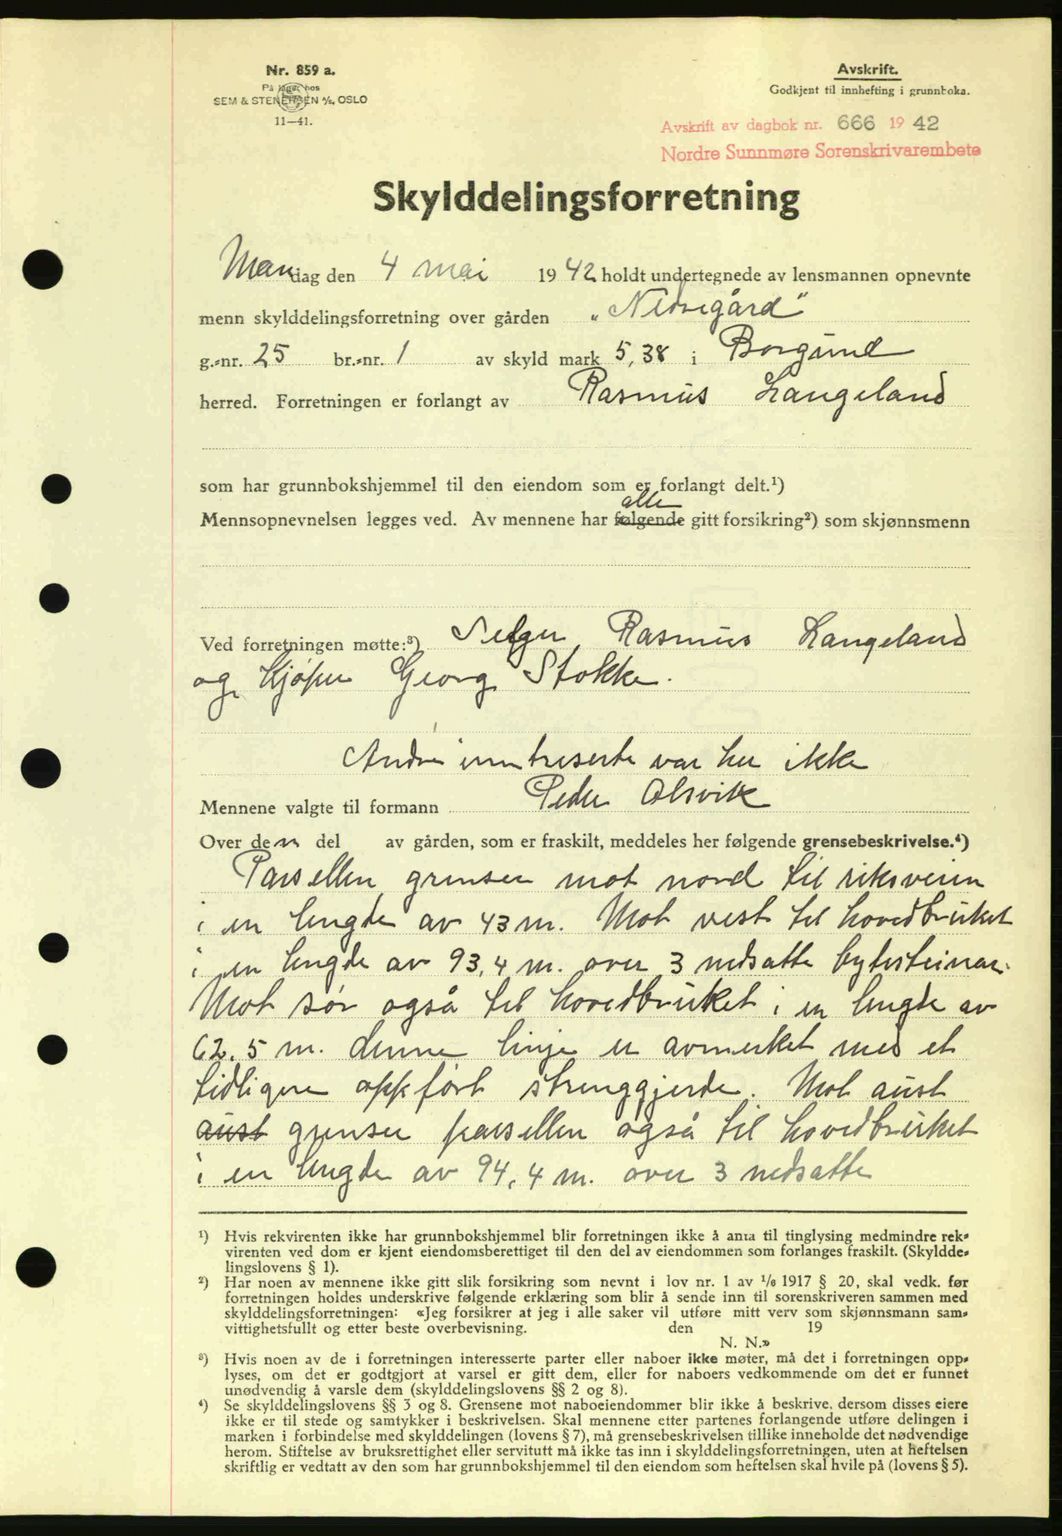 Nr. 859 a.
På lager hos
SEM & STENERSEN A/S, OSLO
11—41.
Avskrift.
Godkjent til innhefting i grunnboka.
Avskrift av dagbok nr. 666 1942
Nordre Sunnmøre Sorenskrivarembete
Skylddelingsforretning
Mandag den 4 mai 1942 holdt undertegnede av lensmannen opnevnte
menn skylddelingsforretning over gården „Nedregård"
g.-nr. 25 br.-nr. 1 av skyld mark 5,38 i Borgund
herred. Forretningen er forlangt av Rasmus Langeland
som har grunnbokshjemmel til den eiendom som er forlangt delt.¹)
alle
Mennsopnevnelsen legges ved. Av mennene har følgende gitt forsikring²) som skjønnsmenn
Ved forretningen møtte:³) Selger Rasmus Langeland
og kjøper Georg Stokke.
Andre inntreserte var her ikke
Mennene valgte til formann Peder Alsvik
Over den del av gården, som er fraskilt, meddeles her følgende grensebeskrivelse.⁴)
Parsellen grenser mot nord til riksveien
i en lengde av 43 m. Mot vest til hovedbruket
i en lengde av 93,4 m. over 3 nedsatte bytesteinar.
Mot sør også til hovedbruket i en lengde av
62.5 m. denne linje er avmerket med et
tidligere oppført strenggjerde. Mot aust
aust grenser parsellen også til hovedbruket
i en lengde av 94,4 m. over 3 nedsatte
¹) Hvis rekvirenten ikke har grunnbokshjemmel blir forretningen ikke å anta til tinglysing medmindre rek-
virenten ved dom er kjent eiendomsberettiget til den del av eiendommen som forlanges fraskilt. (Skyldde-
lingslovens § 1).
²) Har noen av mennene ikke gitt slik forsikring som nevnt i lov nr. 1 av 1/6 1917 § 20, skal vedk. før
forretningen holdes underskrive følgende erklæring som blir å sende inn til sorenskriveren sammen med
skylddelingsforretningen: «Jeg forsikrer at jeg i alle saker vil utføre mitt verv som skjønnsmann sam-
vittighetsfullt og etter beste overbevisning. den 19
N. N.»
³) Hvis noen av de i forretningen interesserte parter eller naboer ikke møter, må det i forretningen opp-
lyses, om det er godtgjort at varsel er gitt dem, eller for naboers vedkommende om det er funnet
unødvendig å varsle dem (skylddelingslovens §§ 2 og 8).
⁴) Se skylddelingslovens §§ 3 og 8. Grensene mot naboeiendommer blir ikke å beskrive, dersom disses eiere
ikke er til stede og samtykker i beskrivelsen. Skal mennene etter partenes forlangende utføre delingen i
marken i forbindelse med skylddelingen (lovens § 7), må grensebeskrivelsen tillike inneholde det nødvendige
herom. Stiftelse av bruksrettighet eller servitutt må ikke tas inn i skylddelingsforretningen, uten at heftelsen
skriftlig er vedtatt av den som har grunnbokshjemmel til den eiendom som heftelsen skal hvile på (lovens § 5).